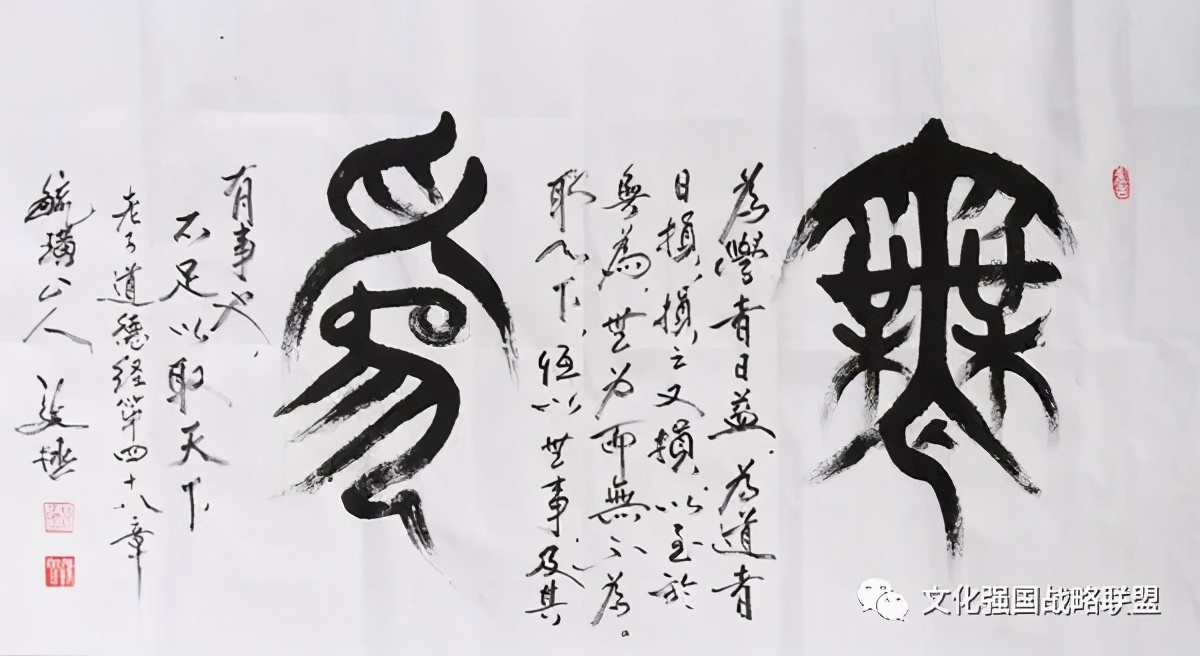 無
為學者日益，为道者
日損，損之又損，以至於
無為。無为而無不為。
取天下，恒以無事，及其
為
有事也，
不足以取天下。
老子道德经第四十八章
巯璜公人
文化强国战略联盟